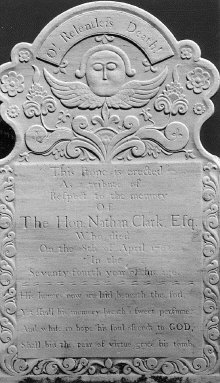 O! Relentless Death!
This Stone is erected
As a tribute of
Respect to the memory
Of
The Hon. Nathan Clark, Esq.
Who died
On the 8th of April
In the
Seventy fourth year of his age.
His honors now are laid beneath the sod,
his memory like a sweet perfume:
And while in hope his soul to GOD,
Shall bid the tear of virtue grace his tomb.